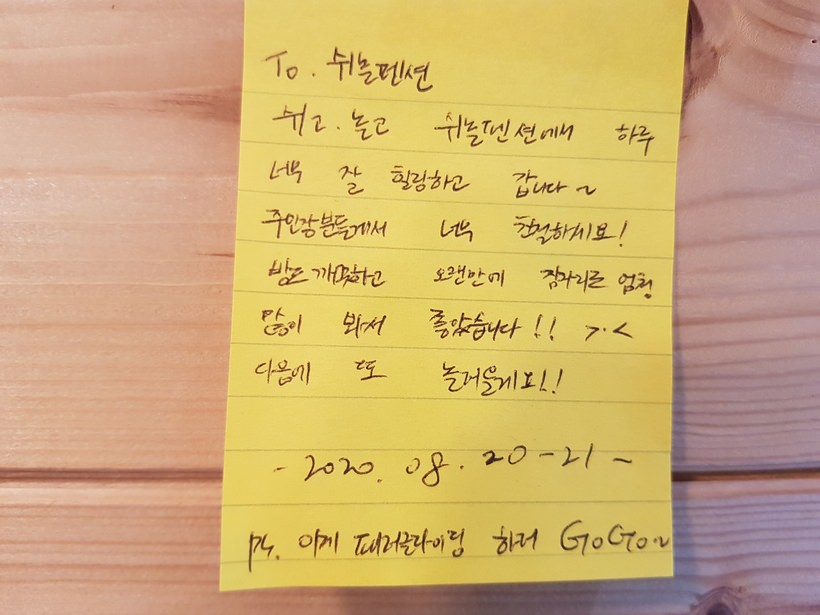 To. 쉬놀펜션
쉬고. 놀고 쉬놀펜션에서 하루
너무 잘 힐링하고 갑니다~
주인장분들께서 너무 친절하시요!
방도 깨끗하고 오랜만에 잠자리를 엄청
많이 봐서 좋았습니다!! >.<
다음에 또 놀거올게요!!
- 2020. 08. 20-21 ~
ps. 이제 패러글라이딩 하러 GoGo~